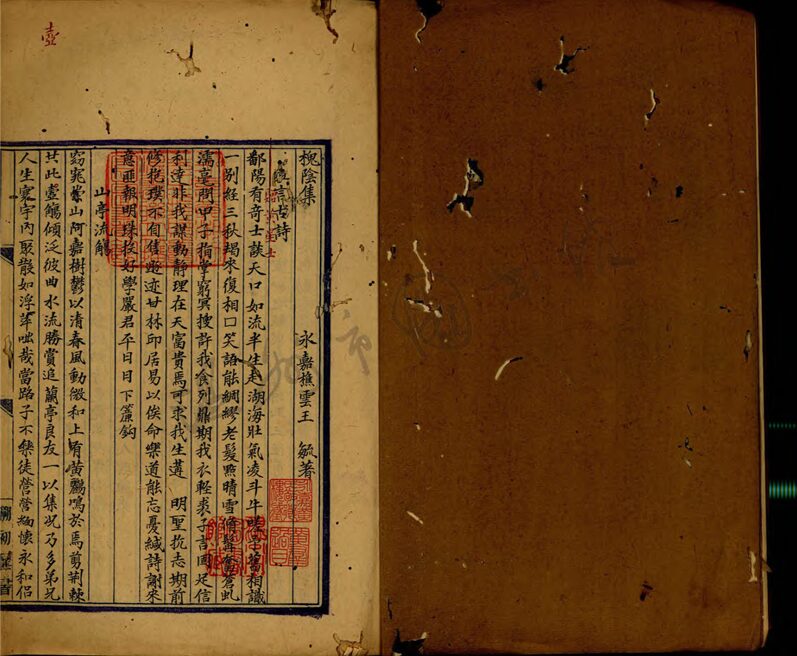 槐陰集
永嘉樵雲王 毓著
古詩
鄱陽有奇士談天口如流半生走湖海壯氣凌斗牛 舊相識
一別經三秋朅來復相口笑語能綢繆老髮照晴雪 蒼虬
濡毫問甲子指掌窮冥搜許我食列鼎期我衣輕裘子言固足信
利達非我謀動靜理在天富貴焉可求我生遘 明聖抗志期前
修抱璞不自售 迹甘林邱居易以俟命樂道能忘憂緘詩謝來
意匪報明珠投好學嚴君平日日下簾鉤
山亭流觴
窈窕 山阿嘉樹鬱以清春風動微和上有黃鸝鳴於焉剪荆棘
共此盡觴傾泛彼曲水流勝賞追蘭亭良友一以集況乃多弟兄
人生寰宇內聚散如浮萍咄哉當路子不樂徒營營緬懷永和侶
壹